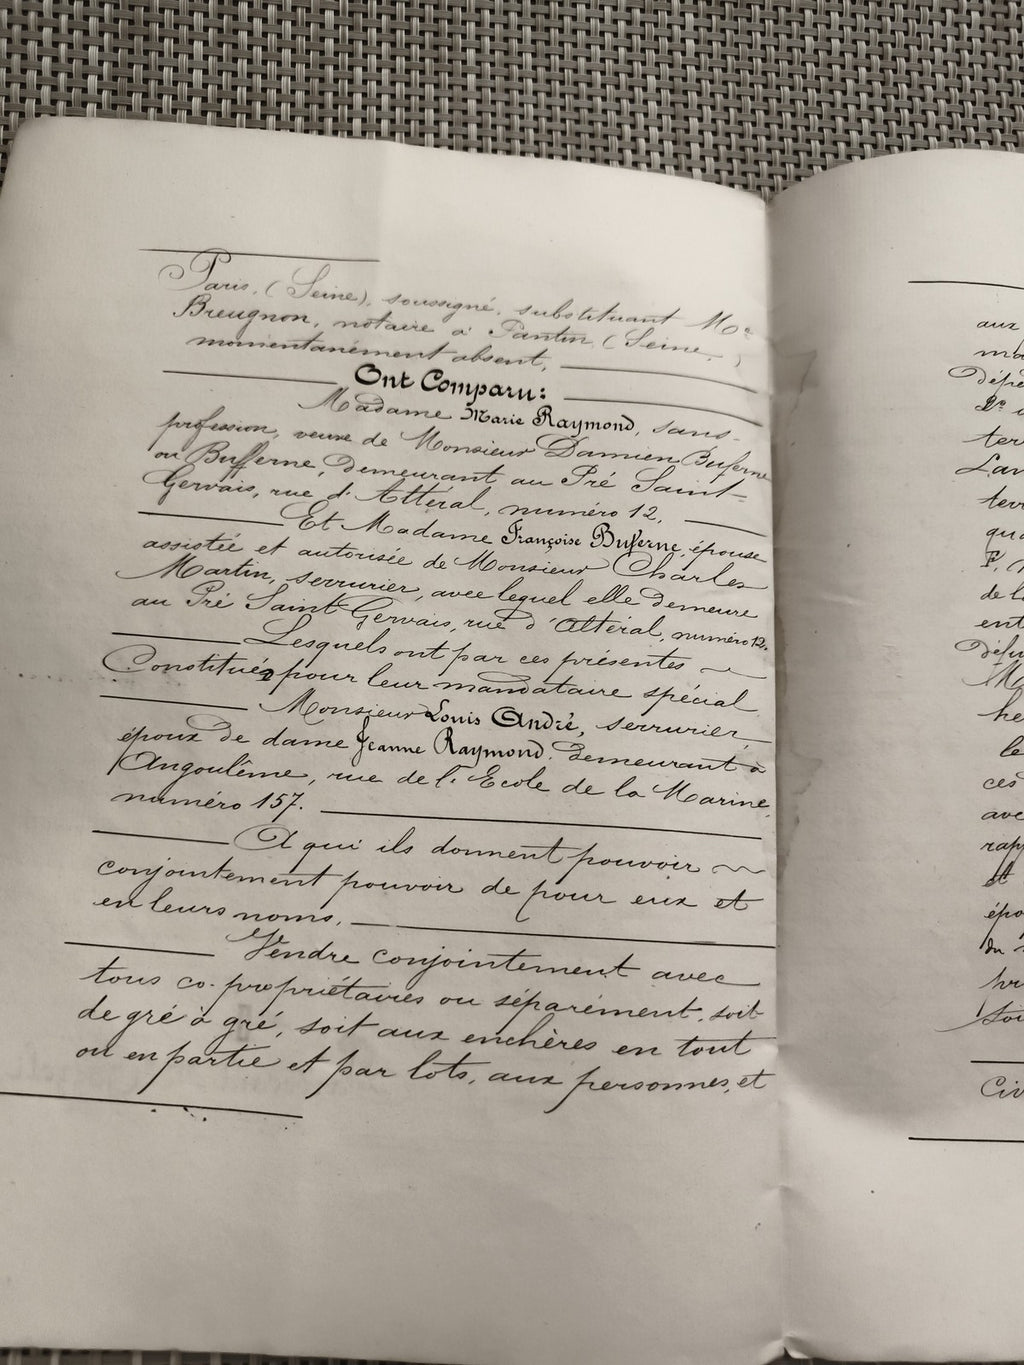 Paris, (Seine), soussigné, substituant Me
Breugnon, notaire à Pantin (Seine,)
momentanément absent,
Ont Comparu:
Madame Marie Raymond, sans
profession, veuve de Monsieur Damien Buferne
ou Bufferne, demeurant au Pré Saint-
Gervais, rue d'Attéral, numéro 12,
Et Madame Françoise Buferne, épouse
assistée et autorisée de Monsieur Charles
Martin, serrurier, avec lequel elle demeure
au Pré Saint Gervais, rue d'Attéral, numéro 12.
Lesquels ont par ces présentes
Constitué pour leur mandataire spécial
Monsieur Louis André, serrurier,
époux de dame Jeanne Raymond, demeurant à
Angoulême, rue de l'Ecole de la Marine,
numéro 157.
A qui ils donnent pouvoir
conjointement pouvoir de pour eux et
en leurs noms,
Vendre conjointement avec
tous co-propriétaires ou séparément, soit
de gré à gré, soit aux enchères en tout
ou en partie et par lots, aux personnes, et
aux
dépe
ter
terr
qu
F,
de l
ent
défu
he
le
ces
ave
rapp
et
épo
du
pr
soi
Civ